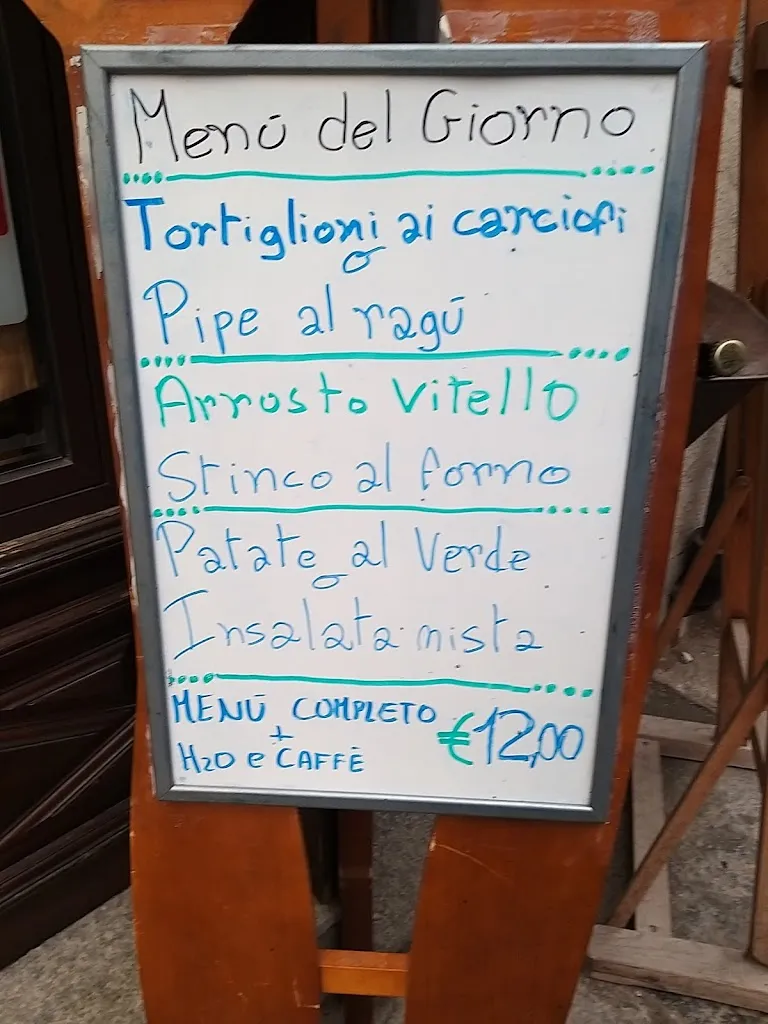 Menú del Giorno
Tortiglioni ai carciofi
o
Pipe al ragú
Arrosto Vitello
Stinco al forno
Patate al Verde
o
Insalata mista
MENÚ COMPLETO
+
H2O e CAFFÈ
€12,00